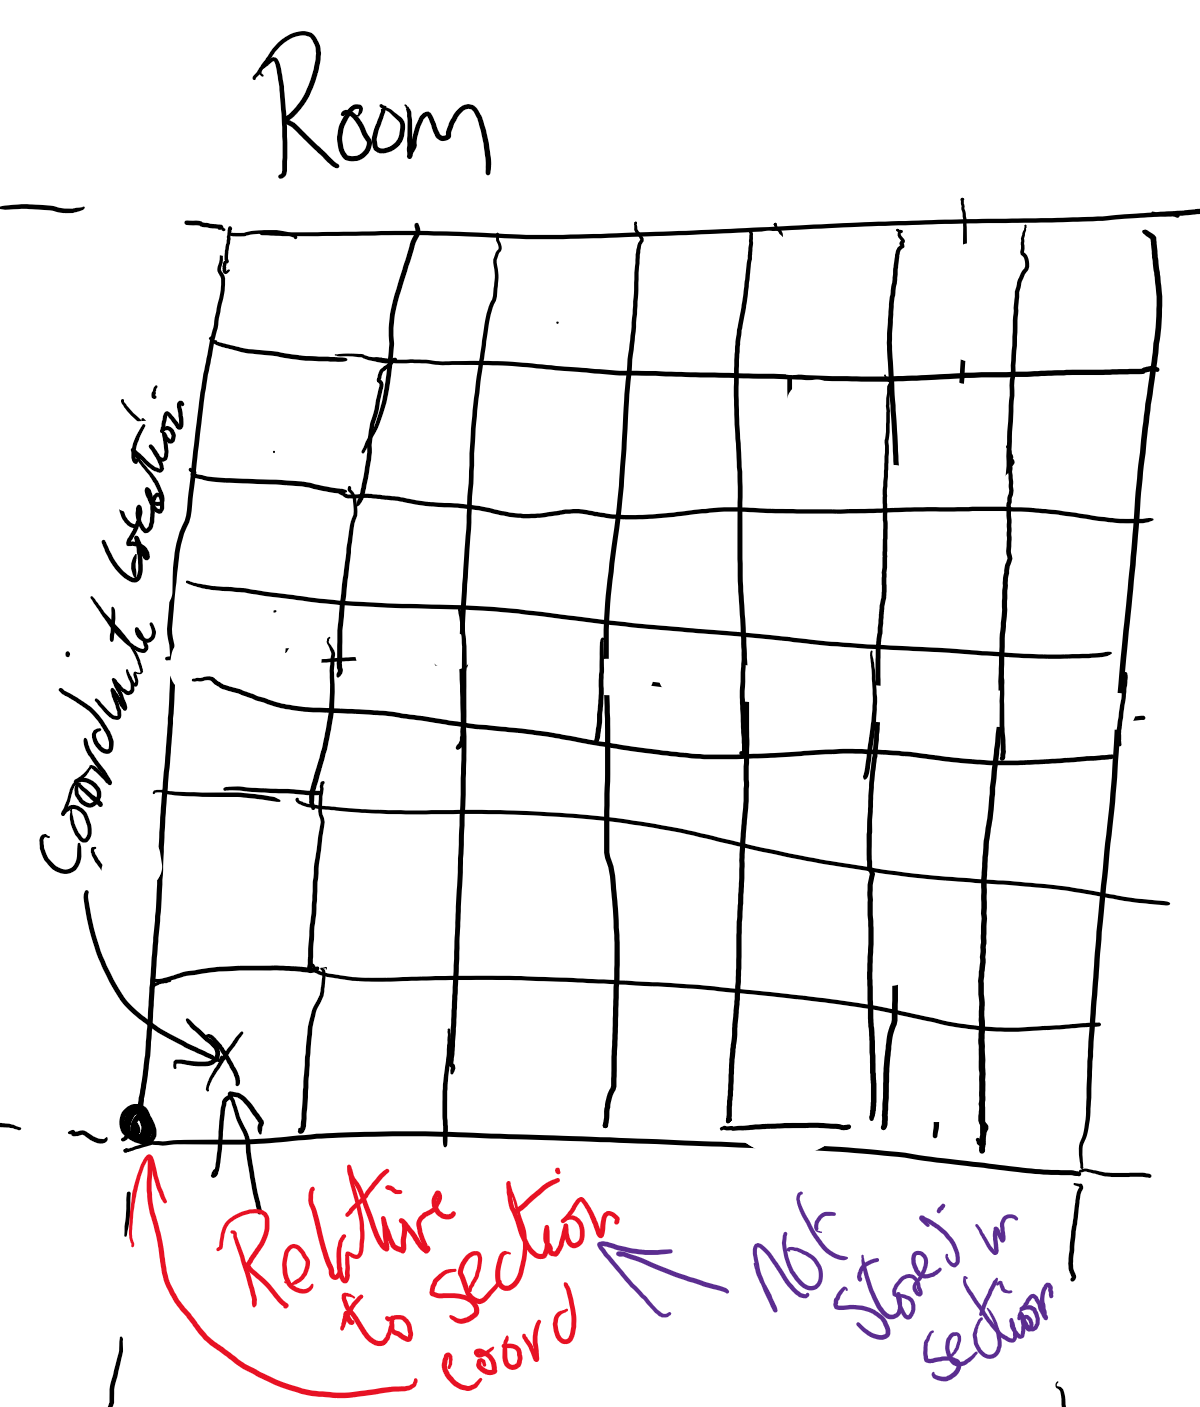 Room
Coordinate location
Relative
to section
coord
Not
stored in
section